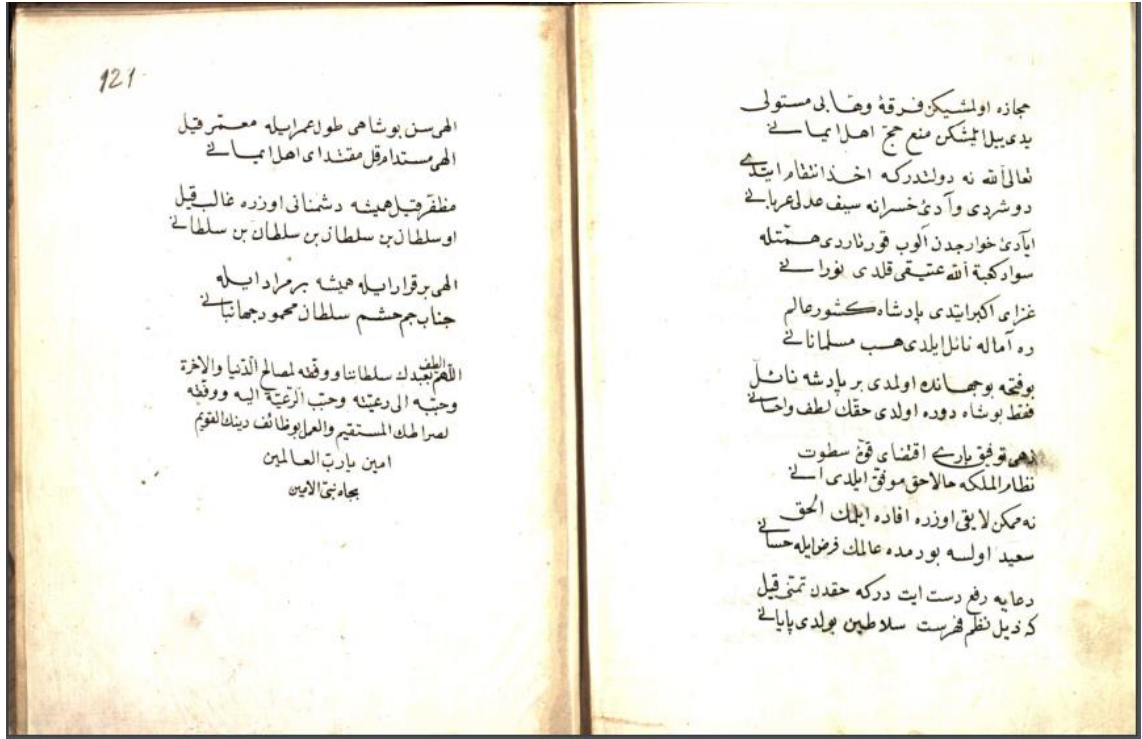 حجازه اولمشيكن فرقهٔ وهابى مستولى
يدى ييل ايلمشكن منع حج اهل ايمانى
تعالى الله نه دولتدركه اخذ انتقام ايتدى
دوشردى وآدئ خسرانه سيف عدلى عربانى
ايآدئ خوارجدن آلوب قورتاردى همتله
سواد كعبة الله عتيقى قلدى نورانى
غزاى اكبر ايتدى پادشاه كشور عالم
ره آماله نائل ايلدى هب مسلمانانى
بوفتحه بوجهانده اولمدى بر پادشه نائل
فقط بوشاه دوره اولدى حقك لطف واحسانى
زهى توفيق بارى اقتضاى قوۀ سطوت
نظام الملكه حالا حق موفق ايلدى آنى
نه ممكن لايقى اوزره افاده ايلمك الحق
سعيد اولسه بودمده عالمك فرضايله حسانى
دعايه رفع دست ايت دركه حقدن تمنى قيل
كه ذيل نظم فهرست سلاطين بولدى پايانى
121
الهى سن بوشاهى طول عمر ايله معمر قيل
الهى مستدام قل مقتداى اهل ايمانى
مظفر قيل هميشه دشمنانى اوزره غالب قيل
او سلطان بن سلطان بن سلطان بن سلطانى
الهى برقرار ايله هميشه برمراد ايله
جناب جم حشم سلطان محمود جهانبانى
اللهم الطف بعبدك سلطاننا ووفقه لمصالح الدنيا والاخرة
وحببه الى رعيته وحبب الرعية اليه ووفقه
لصراطك المستقيم والعمل بوظائف دينك القويم
امين يارب العالمين
بجاه نبى الامين